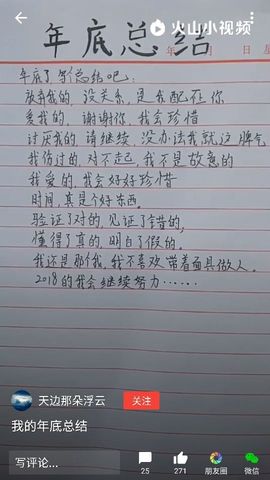 火山小视频
年底总结
年 月 日 星
年底了写个总结吧:
放弃我的,没关系,是我配不上你
爱我的,谢谢你,我会珍惜
讨厌我的,请继续,没办法我就这脾气
我伤过的,对不起,我不是故意的
我爱的,我会好好珍惜
时间,真是个好东西。
验证了对的,见证了错的,
懂得了真的,明白了假的。
我还是那个我,我不喜欢带着面具做人。
2018的我会继续努力……
天边那朵浮云
关注
我的年底总结
写评论...
25
271
朋友圈
微信